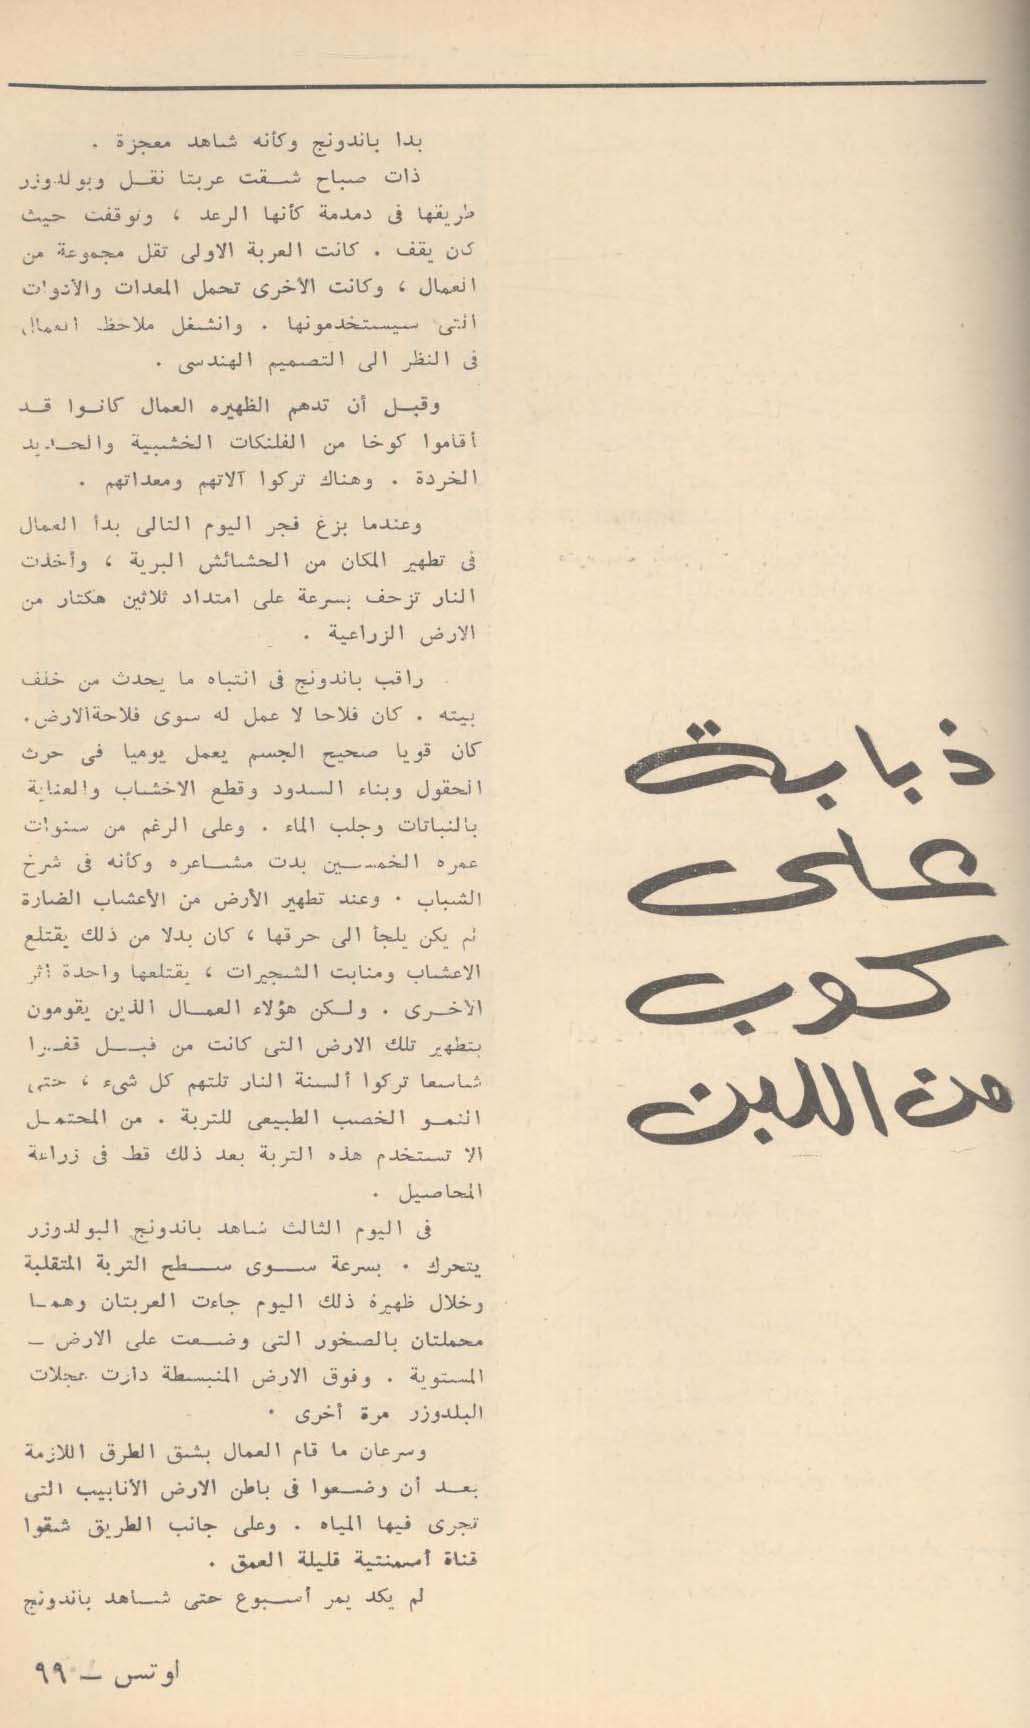 ذبابة
على
كوب
من اللبن
بدا باندونج وكأنه شاهد معجزة .
ذات صباح شـقت عربتا نقـل وبولدوزر
طريقها فى دمدمة كأنها الرعد ، وتوقفت حيث
كان يقف . كانت العربة الاولى تقل مجموعة من
العمال ، وكانت الأخرى تحمل المعدات والأدوات
التى سيستخدمونها . وانشغل ملاحظ العمال
فى النظر الى التصميم الهندسى .
وقبـل أن تدهم الظهيره العمال كانـوا قـد
أقاموا كوخا من الفلنكات الخشبية والحـديد
الخردة . وهناك تركوا آلاتهم ومعداتهم .
وعندما بزغ فجر اليوم التالى بدأ العمال
فى تطهير المكان من الحشائش البرية ، وأخذت
النار تزحف بسرعة على امتداد ثلاثين هكتار من
الارض الزراعية .
راقب باندونج فى انتباه ما يحدث من خلف
بيته . كان فلاحا لا عمل له سوى فلاحةالارض.
كان قويا صحيح الجسم يعمل يوميا فى حرث
الحقول وبناء السدود وقطع الاخشاب والعناية
بالنباتات وجلب الماء . وعلى الرغم من سنوات
عمره الخمسـين بدت مشـاعره وكأنه فى شرخ
الشباب . وعند تطهير الأرض من الأعشاب الضارة
لم يكن يلجأ الى حرقها ، كان بدلا من ذلك يقتلع
الاعشاب ومنابت الشجيرات ، يقتلعها واحدة اثر
الاخـرى . ولـكن هؤلاء العمـال الذين يقومون
بتطهير تلك الارض التى كانت من قبـل قفـرا
شاسعا تركوا ألسنة النار تلتهم كل شىء ، حتى
النمـو الخصب الطبيعى للتربة . من المحتمـل
الا تستخدم هذه التربة بعد ذلك قط فى زراعة
المحاصيل .
فى اليوم الثالث شاهد باندونج البولدوزر
يتحرك . بسرعة سـوى سـطح التربة المتقلبة
وخلال ظهيرة ذلك اليوم جاءت العربتان وهمـا
محملتان بالصخور التى وضـعت على الارض ـ
المستوية . وفوق الارض المنبسطة دارت عجلات
البلدوزر مرة أخرى .
وسرعان ما قام العمال بشق الطرق اللازمة
بعـد أن وضـعوا فى باطن الارض الأنابيب التى
تجرى فيها المياه . وعلى جانب الطريق شقوا
قناة أسمنتية قليلة العمق .
لم يكد يمر أسـبوع حتى شـاهد باندونج
اوتس ـ ٩٩